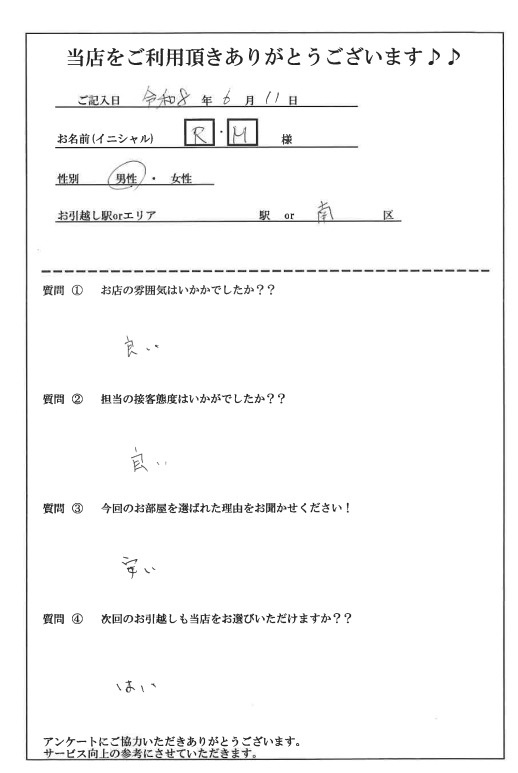 当店をご利用頂きありがとうございます♪♪
ご記入日 令和8 年 6 月 11 日
お名前(イニシャル) R・M 様
性別 男性 ・ 女性
お引越し駅orエリア 駅 or 南 区
質問 ① お店の雰囲気はいかかでしたか??
良い
質問 ② 担当の接客態度はいかがでしたか??
良い
質問 ③ 今回のお部屋を選ばれた理由をお聞かせください!
安い
質問 ④ 次回のお引越しも当店をお選びいただけますか??
はい
アンケートにご協力いただきありがとうございます。
サービス向上の参考にさせていただきます。